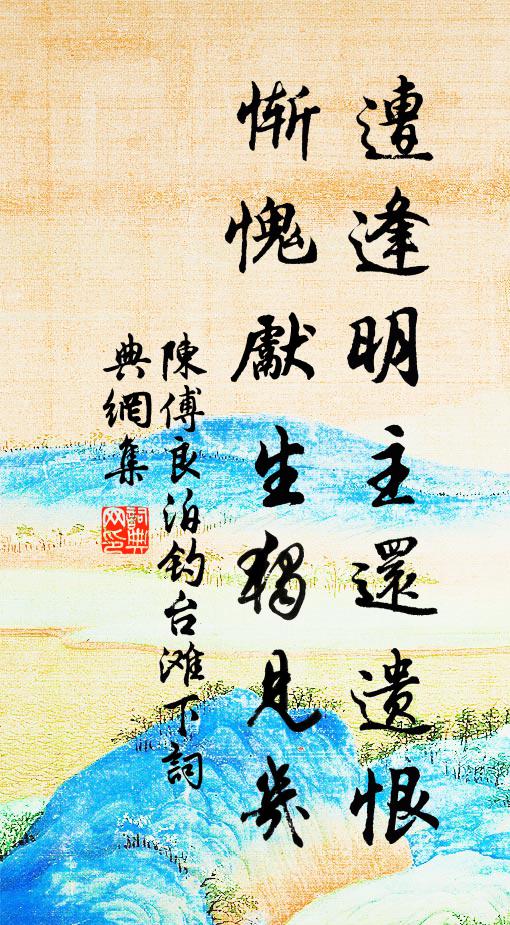 遭逢明主還遺恨
慚愧嚴生獨見幾
陳傅良泊钓台滩下詞
典網集
詞典
网印